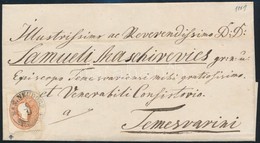 Illustrissimo ac Reverendissimo D. D:
Samueli Maschirevics
Episcopo Temesvariensi mihi gratiosissimo
et Venerabili Consistorio.
a
Temesvarini